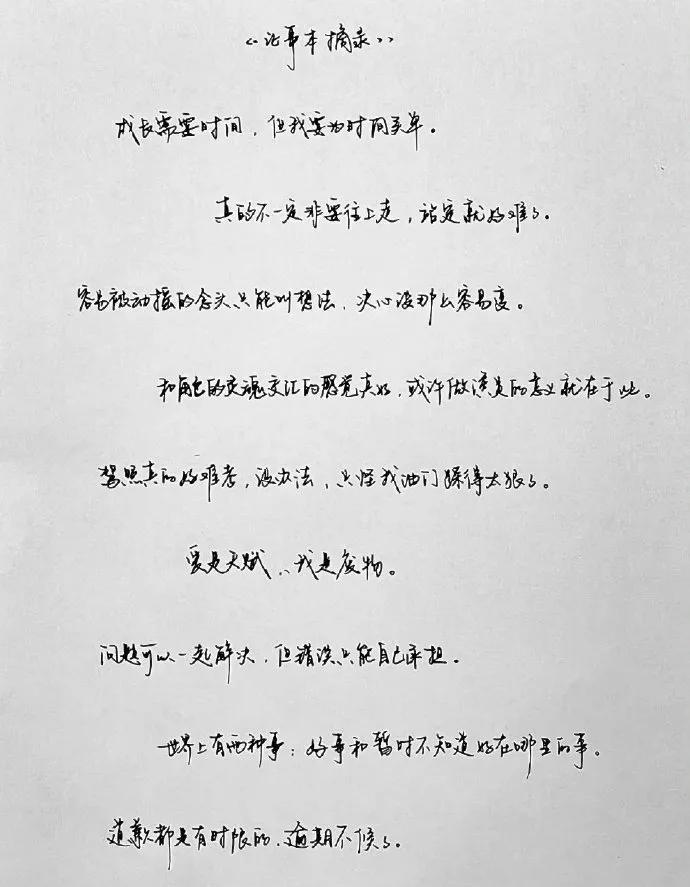 《记事本摘录》
成长需要时间，但我要为时间买单。
真的不一定非要往上走，站定就好难了。
容易被动摇的念头只能叫想法，决心没那么容易变。
和角色的灵魂交汇的感觉真好，或许做演员的意义就在于此。
驾照真的好难考，没办法，只怪我油门踩得太狠了。
爱是天赋，我是废物。
问题可以一起解决，但错误只能自己承担。
世界上有两种事：好事和暂时不知道好在哪里的事。
道歉都是有时限的，逾期不候了。